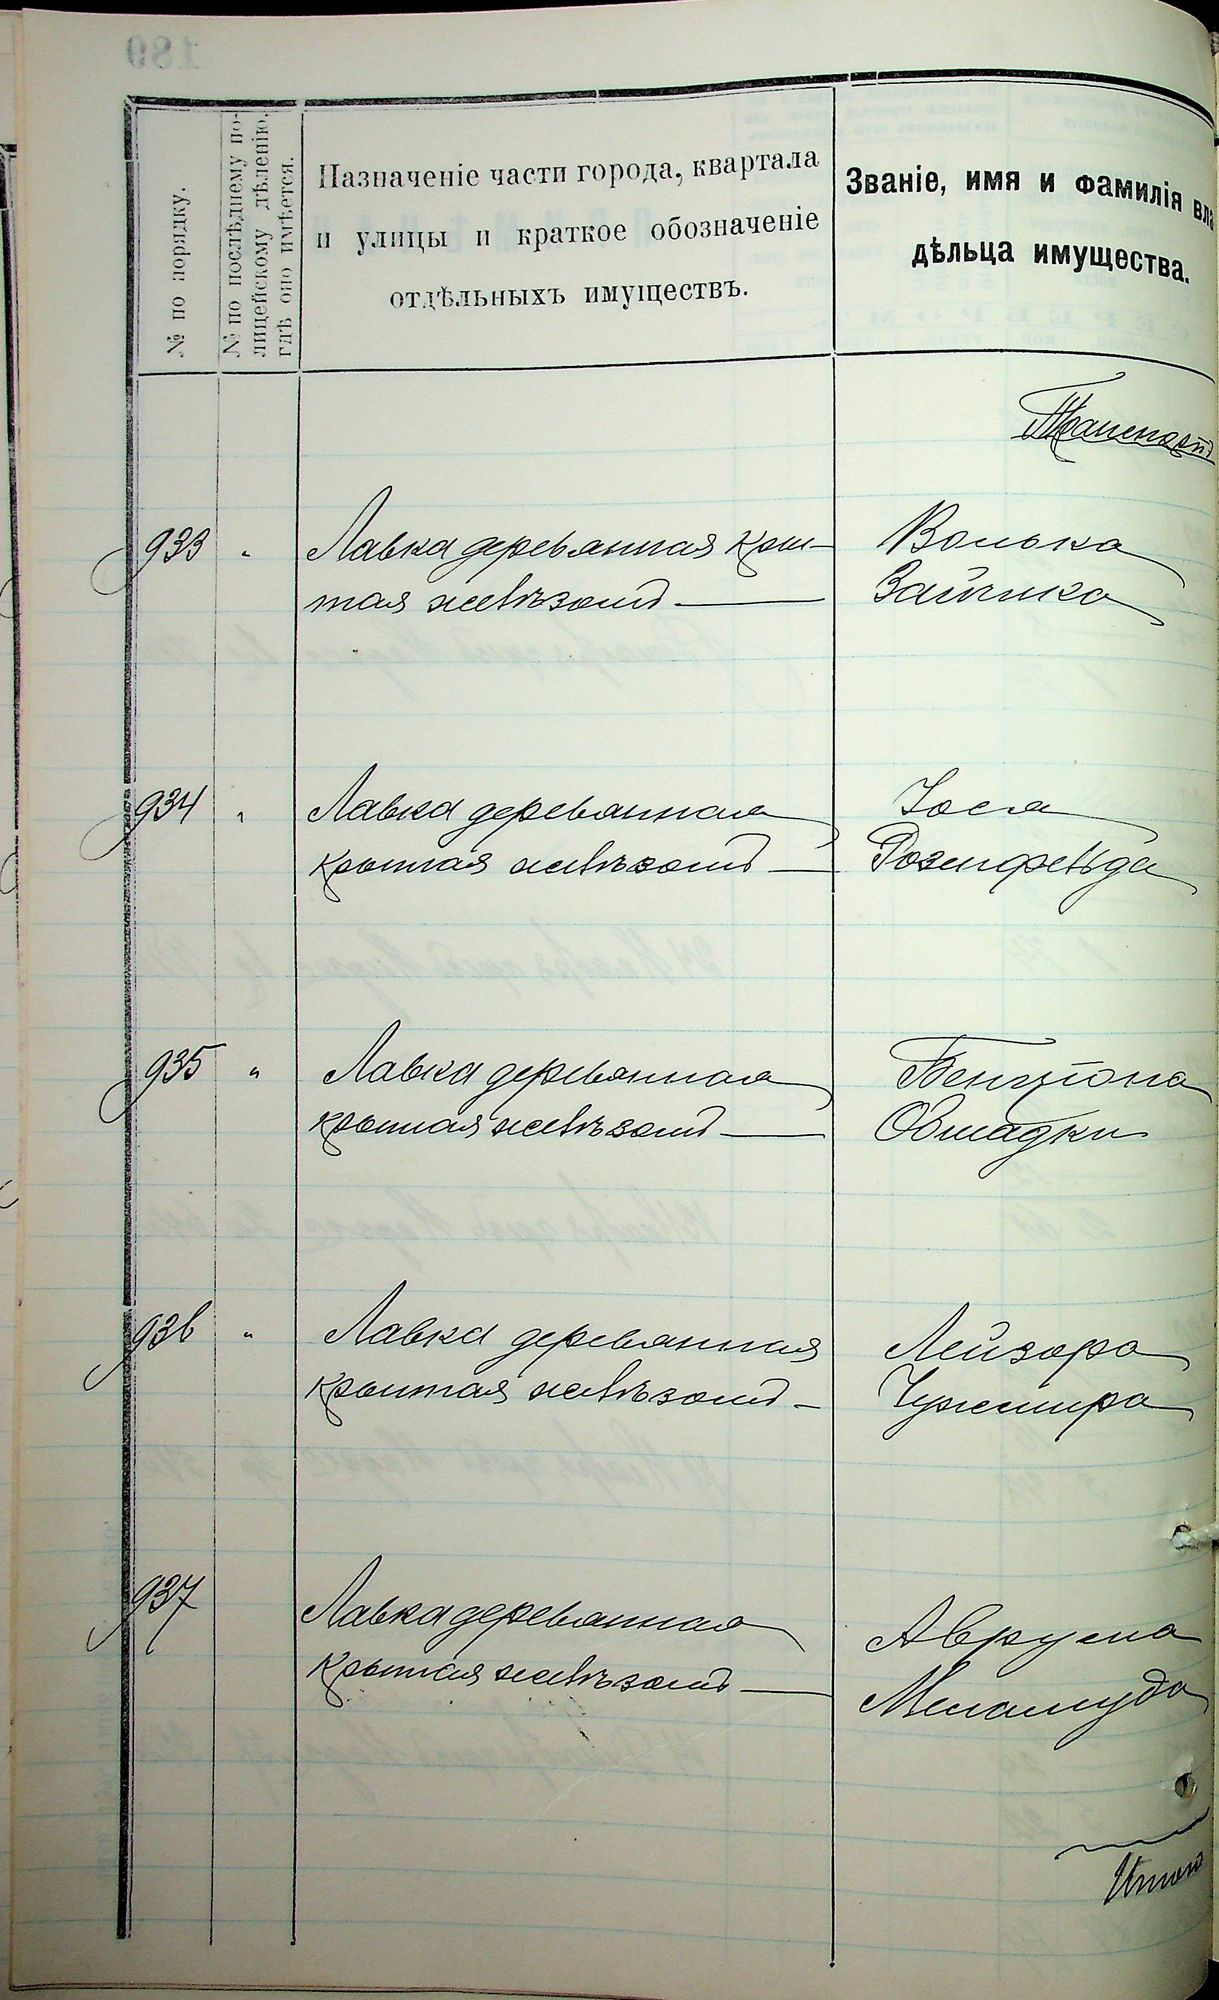 № по порядку.
№ по послѣднему по-
лицейскому дѣленію,
гдѣ оно имѣется.
Назначеніе части города, квартала
и улицы и краткое обозначеніе
отдѣльныхъ имуществъ.
Званіе, имя и фамилія вла
дѣльца имущества.
Транспортъ
933 " Лавка деревянная кры-
тая желѣзомъ —
Волька
Зайчика
934 " Лавка деревянная
крытая желѣзомъ —
Іося
Розенфельда
935 " Лавка деревянная
крытая желѣзомъ —
Бенціона
936 " Лавка деревянная
крытая желѣзомъ -
Лейзора
Чужмира
937 Лавка деревянная
крытая желѣзомъ —
Аврума
Меламуда
Итого